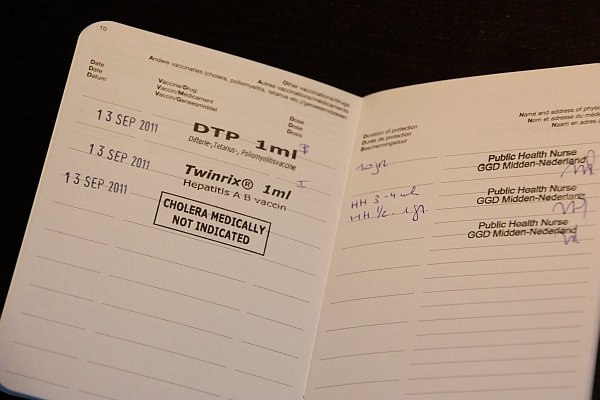 10
Other vaccinations/drugs
Autres vaccinations/médicaments
Andere vaccinaties (cholera, poliomyelitis, tetanus etc.)/geneesmiddelen
Date
Date
Datum
Vaccine/Drug
Vaccin/Médicament
Vaccin/Geneesmiddel
Dose
Dose
Dosis
13 SEP 2011
DTP 1ml
Difterie-, Tetanus-, Poliomyelitisvaccine
13 SEP 2011
Twinrix® 1ml
Hepatitis A B vaccin
I
13 SEP 2011
CHOLERA MEDICALLY
NOT INDICATED
Duration of protection
Durée de protection
Beschermingsduur
Name and address of physi
Nom et adresse du méde
Naam en adres
10 jr
Public Health Nurse
GGD Midden-Nederland
HH 3-4 wk
HH 1/2 - 1 jr.
Public Health Nurse
GGD Midden-Nederland
Public Health Nurse
GGD Midden-Nederland